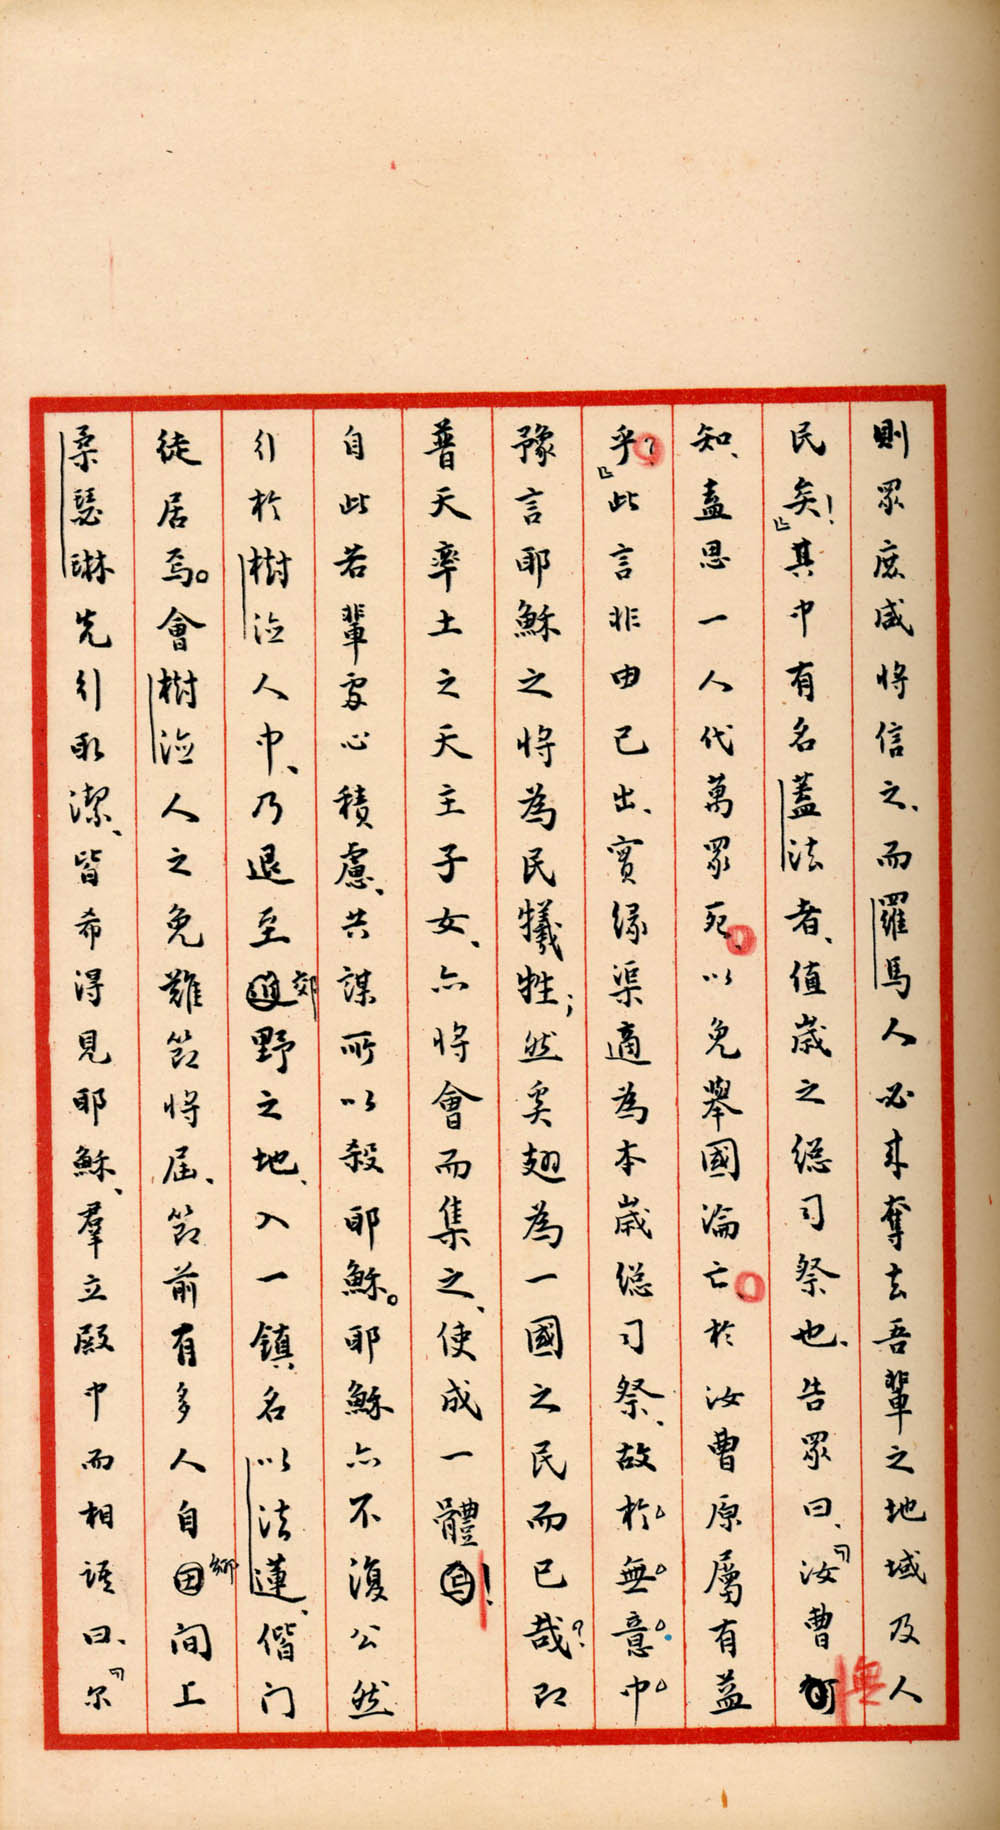 則眾庶咸將信之、而羅馬人必來奪去吾輩之地域及人
民矣！」其中有名蓋法者、值歲之總司祭也、告眾曰、「汝曹無
知、盍思一人代萬眾死、以免舉國淪亡於汝曹原屬有益
乎？」此言非由己出、實緣渠適為本歲總司祭、故於無意中
豫言耶穌之將為民犧牲；然奚翅為一國之民而已哉？即
普天率土之天主子女、亦將會而集之、使成一體！
自此若輩處心積慮、共謀所以殺耶穌。耶穌亦不復公然
行於樹滋人中、乃退至郊野之地、入一鎮名以法蓮、偕门
徒居焉。會樹滋人之免難節將屆、節前有多人自鄉间上
柔瑟琳先行取潔、皆希得見耶穌、羣立殿中而相語曰、「尔